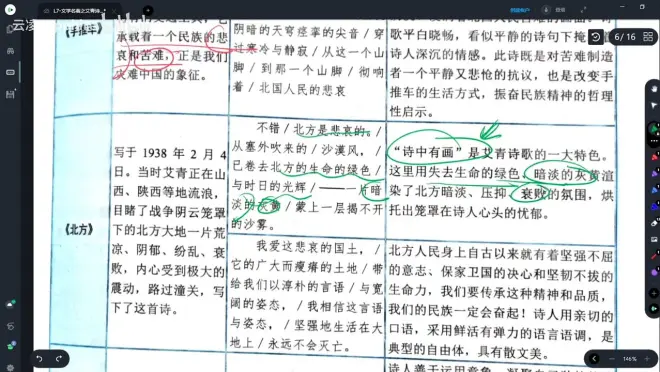 L7-文学名著之艾青诗
6/16
《手推车》
承载着一个民族的悲
哀和苦难,正是我们
灾难中国的象征。
阴暗的天穹痉挛的尖音/穿
过寒冷与静寂/从这一个山
脚/到那一个山脚/彻响
着/北国人民的悲哀
歌平白晓畅,看似平静的诗句下掩
诗人深沉的情感。此诗既是对苦难制造
者一个平静又悲怆的抗议,也是改变手
推车的生活方式,振奋民族精神的哲理
性启示。
《北方》
写于 1938 年 2 月 4
日。当时艾青正在山
西、陕西等地流浪,
目睹了战争阴云笼罩
下的北方大地一片荒
凉、阴郁、纷乱、衰
败,内心受到极大的
震动,路过潼关,写
下了这首诗。
不错/北方是悲哀的。/
从塞外吹来的/沙漠风,/
已卷去北方的生命的绿色/
与时日的光辉/——一片暗
淡的灰黄/蒙上一层揭不开
的沙雾。
“诗中有画”是艾青诗歌的一大特色。
这里用失去生命的绿色、暗淡的灰黄渲
染了北方暗淡、压抑、衰败的氛围,烘
托出笼罩在诗人心头的忧郁。
我爱这悲哀的国土,/
它的广大而瘦瘠的土地/带
给我们以淳朴的言语/与宽
阔的姿态,/我相信这言语
与姿态,/坚强地生活在大
地上/永远不会灭亡。
北方人民身上自古以来就有着坚强不屈
的意志、保家卫国的决心和坚韧不拔的
生命力,我们要传承这种精神和品质,
我们的民族一定会奋起!诗人用亲切的
口语,采用鲜活有弹力的语言语调,是
典型的自由体,具有散文美。
146%